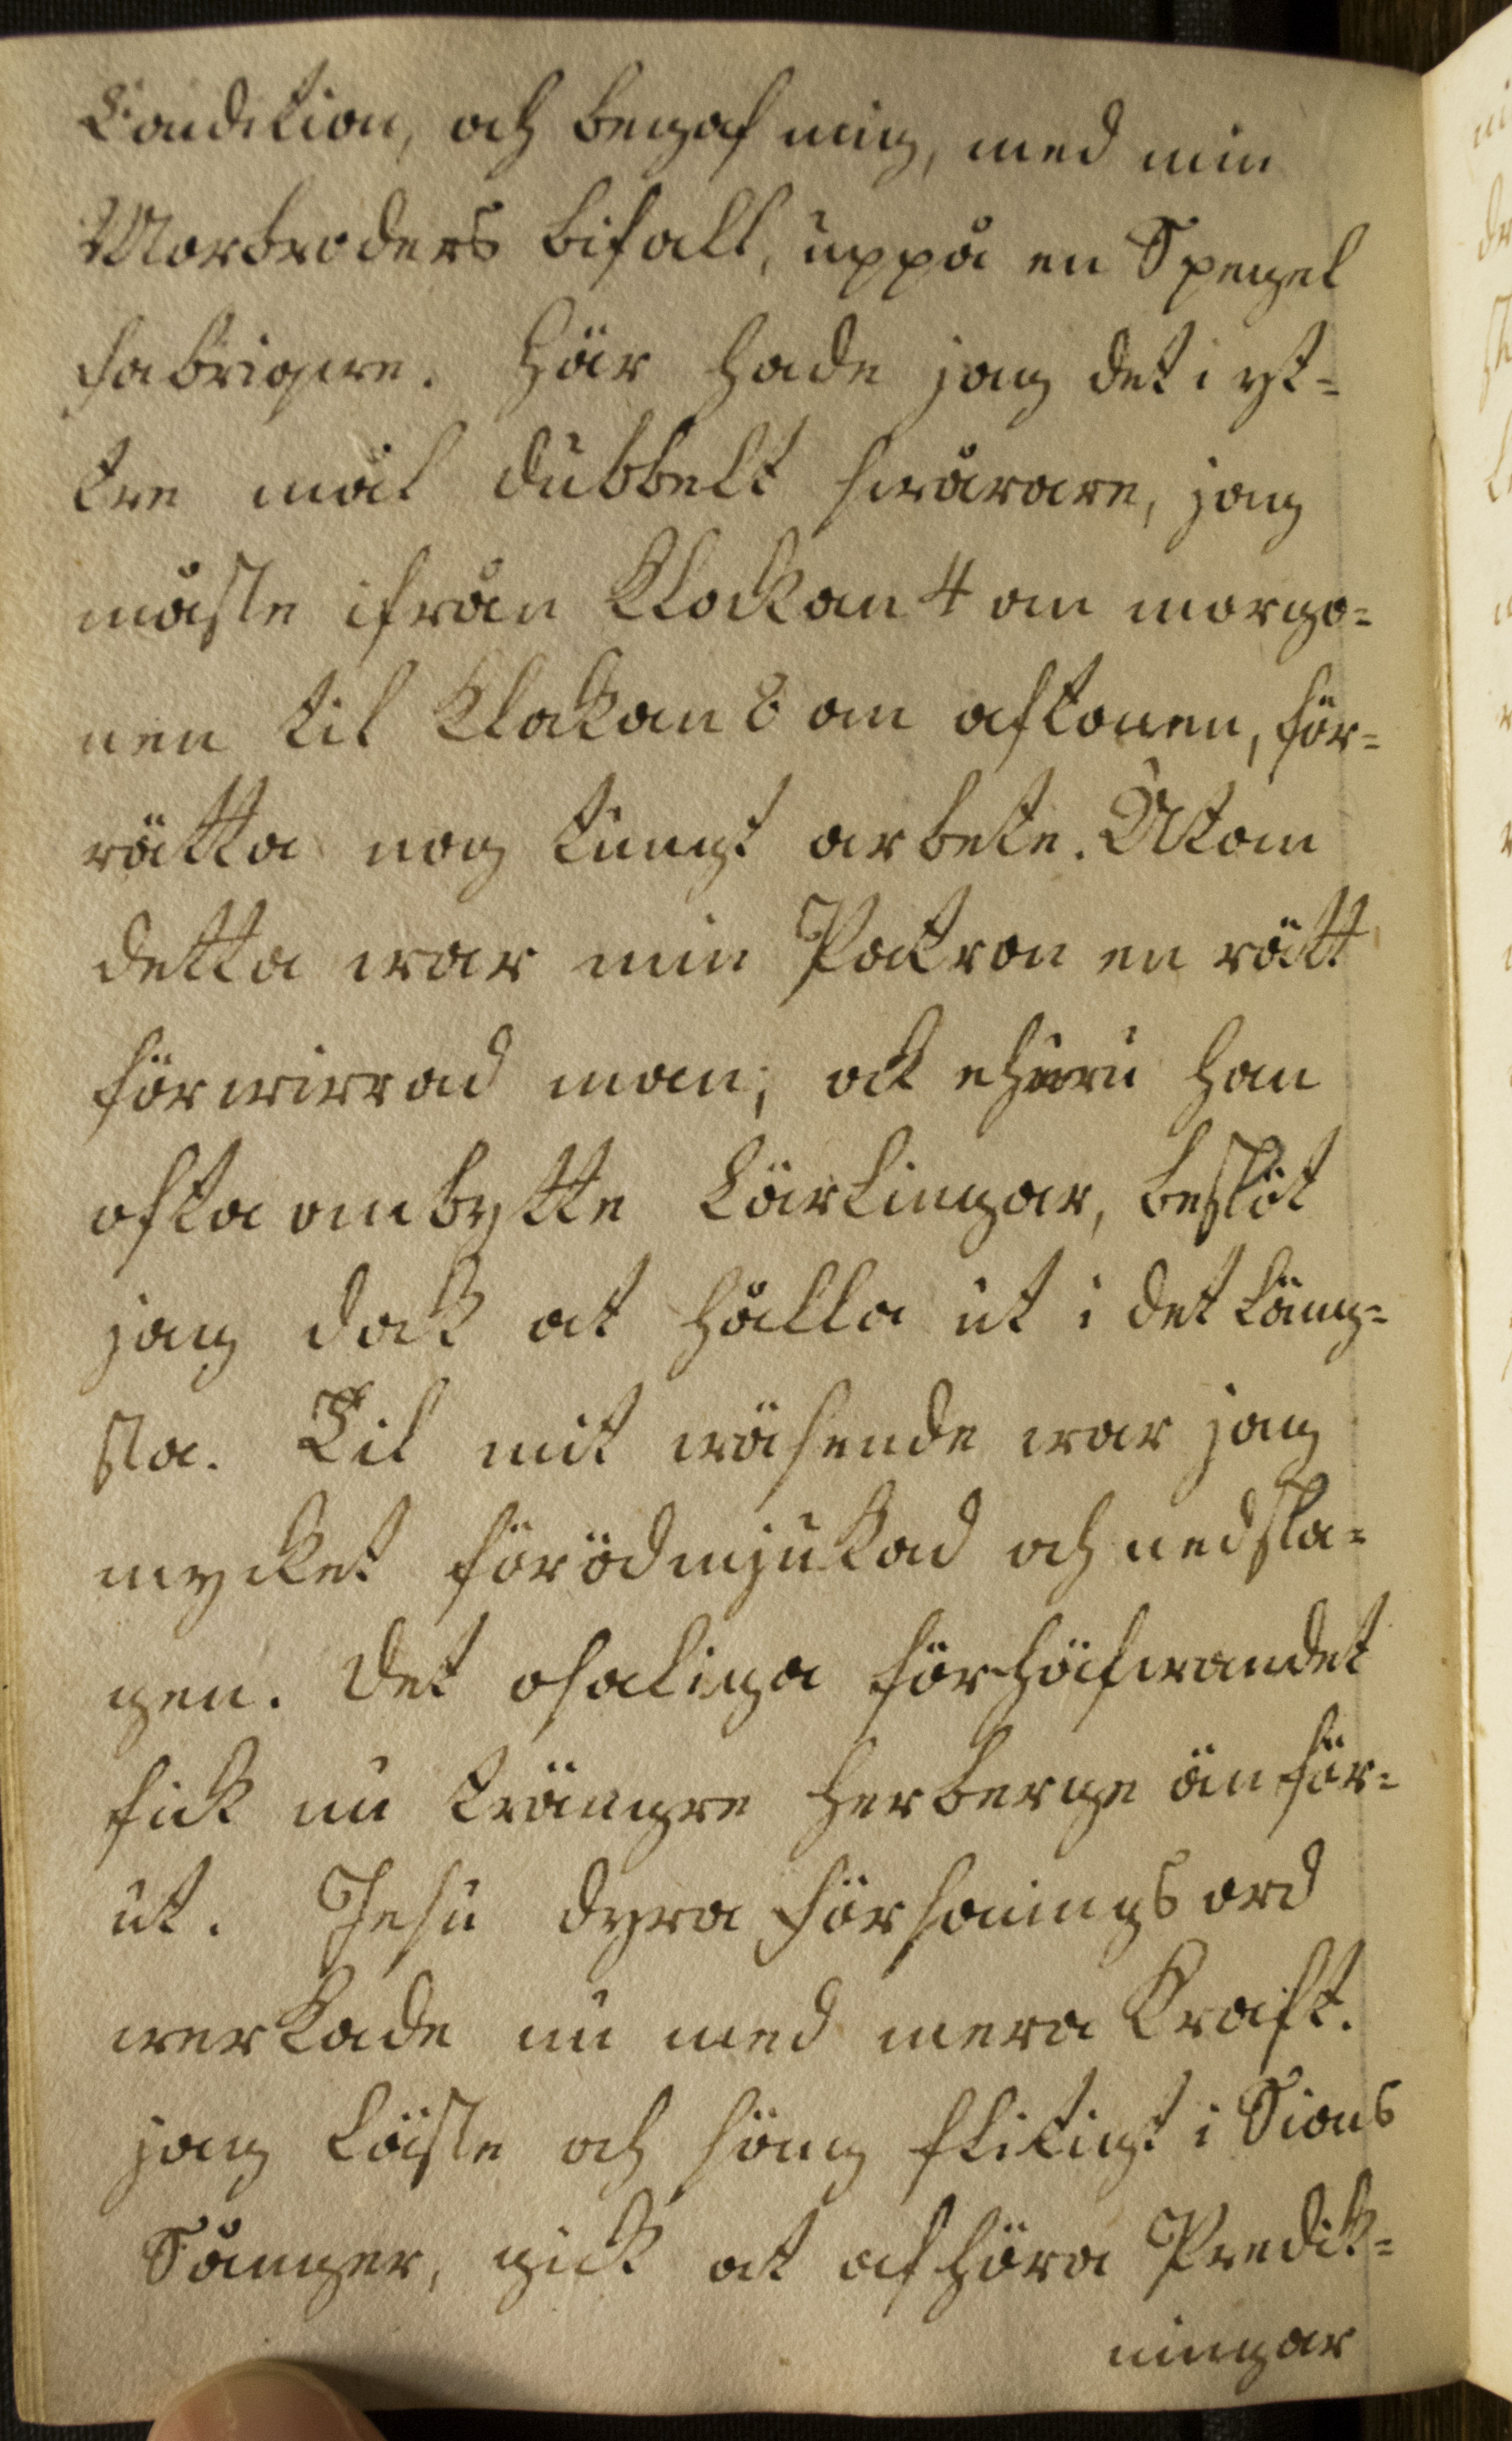 Condition, och begaf mig, med min
Morbroders bifall, uppå en Spegel
fabrique. Här hade jag det i yt-
tre mål dubbelt swårare, jag
måste ifrån Klockan 4 om morgo-
nen til Klokan 8 om aftonen, för-
rätta nog tungt arbete. Utom
detta war min Patron en rätt
förwirrad man; ock ehuru han
ofta ombytte Lärlingar, beslöt
jag dock at hålla ut i det läng-
sta. Til mit wäsende war jag
mycket förödmjukad och nedsla-
gen. Det osaliga förhäfwandet
fick nu trängre herberge än för-
ut. Jesu dyra försonings ord
werkade nu med mera Kraft.
jag läste och söng flitigt i Sions
Sånger, gick at afhöra Predik-
ningar